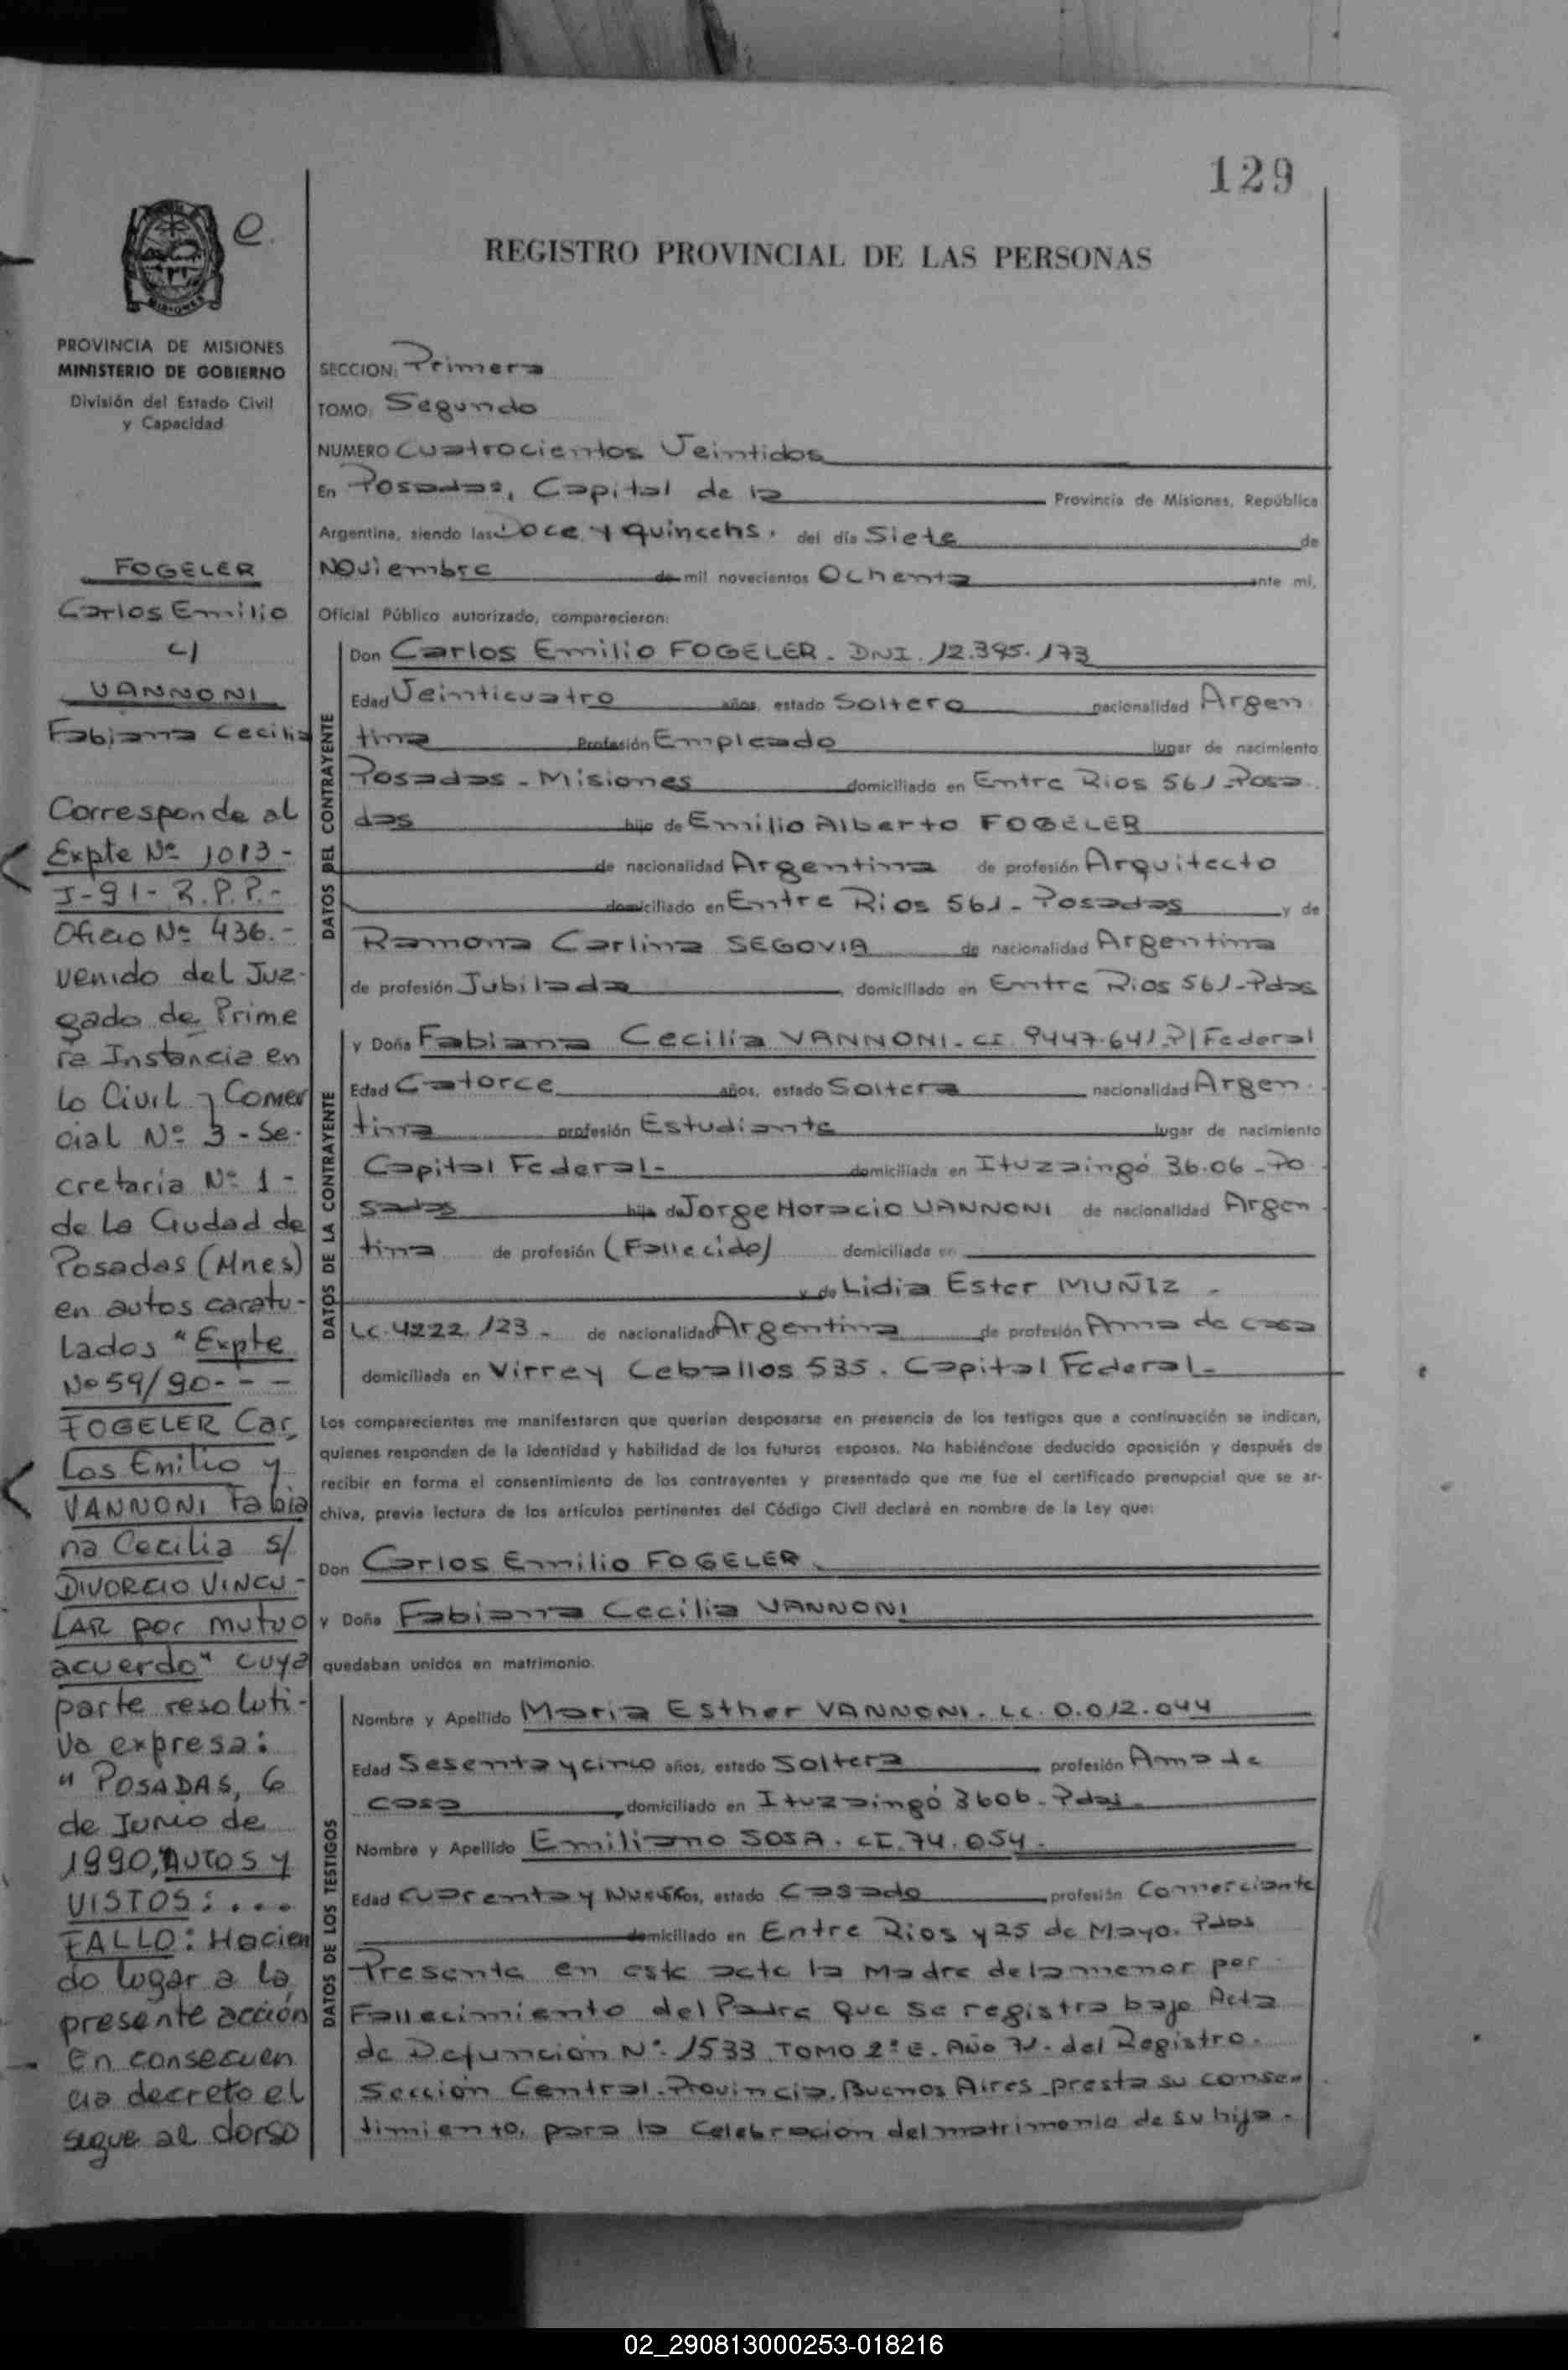 129
e.
REGISTRO PROVINCIAL DE LAS PERSONAS
MISIONES
PROVINCIA DE MISIONES
MINISTERIO DE GOBIERNO
División del Estado Civil
y Capacidad
FOGELER
Carlos Emilio
c/
VANNONI
Fabiana Cecilia
Corresponde al
Expte Nº 1013-
J-91-R.P.P.-
Oficio Nº 436.-
venido del Juz-
gado de Prime
ra Instancia en
lo Civil y Comer
cial Nº 3 - Se-
cretaria Nº 1 -
de la Ciudad de
Posadas (Mnes)
en autos caratu-
lados "Expte
Nº 59/90- - -
FOGELER Car,
los Emilio y
VANNONI Fabia
na Cecilia s/
DIVORCIO VINCU-
LAR por mutuo
acuerdo" cuya
parte resoluti-
va expresa:
"POSADAS, 6
de Junio de
1990, AUTOS Y
VISTOS: ....
FALLO: Hacien
do lugar a la
presente acción
En consecuen
cia decreto el
sigue al dorso
SECCION: Primera
TOMO: Segundo
NUMERO Cuatrocientos Veintidos
En Posadas, Capital de la Provincia de Misiones, República
Argentina, siendo las Doce y quince hs. del día Siete de
Noviembre de mil novecientos Ochenta ante mi,
Oficial Público autorizado, comparecieron:
DATOS DEL CONTRAYENTE
Don Carlos Emilio FOGELER - DNI. 12.395.173
Edad Veinticuatro años, estado Soltero nacionalidad Argen
tina Profesión Empleado lugar de nacimiento
Posadas - Misiones domiciliado en Entre Rios 561 - Posa
das hijo de Emilio Alberto FOGELER
de nacionalidad Argentina de profesión Arquitecto
domiciliado en Entre Rios 561 - Posadas y de
Ramona Carlina SEGOVIA de nacionalidad Argentina
de profesión Jubilada domiciliado en Entre Rios 561 - Pdas
DATOS DE LA CONTRAYENTE
y Doña Fabiana Cecilia VANNONI - CI. 9447.641 - P/Federal
Edad Catorce años, estado Soltera nacionalidad Argen
tina profesión Estudiante lugar de nacimiento
Capital Federal - domiciliada en Ituzaingó 36.06 - Po
sadas hija de Jorge Horacio VANNONI de nacionalidad Argen
tina de profesión (Fallecido) domiciliado en
y de Lidia Ester MUÑIZ -
LC. 4222.123 - de nacionalidad Argentina de profesión Ama de casa
domiciliada en Virrey Ceballos 535. Capital Federal -
Los comparecientes me manifestaron que querían desposarse en presencia de los testigos que a continuación se indican,
quienes responden de la identidad y habilidad de los futuros esposos. No habiéndose deducido oposición y después de
recibir en forma el consentimiento de los contrayentes y presentado que me fue el certificado prenupcial que se ar-
chiva, previa lectura de los artículos pertinentes del Código Civil declaré en nombre de la Ley que:
Don Carlos Emilio FOGELER -
y Doña Fabiana Cecilia VANNONI
quedaban unidos en matrimonio.
DATOS DE LOS TESTIGOS
Nombre y Apellido Maria Esther VANNONI - LC. 0.012.044
Edad Sesenta y cinco años, estado Soltera profesión Ama de
casa domiciliado en Ituzaingó 3606 - Pdas -
Nombre y Apellido Emiliano SOSA. CI. 74.054 -
Edad Cuarenta y Nueve años, estado Casado profesión Comerciante
domiciliado en Entre Rios y 25 de Mayo. Pdas
Presente en este acto la Madre de la menor por
Fallecimiento del Padre que se registra bajo Acta
de Defunción Nº 1533 TOMO 2º E. Año 71. del Registro.
Sección Central. Provincia. Buenos Aires presta su consen
timiento, para la celebracion del matrimonio de su hija -
02_290813000253-018216